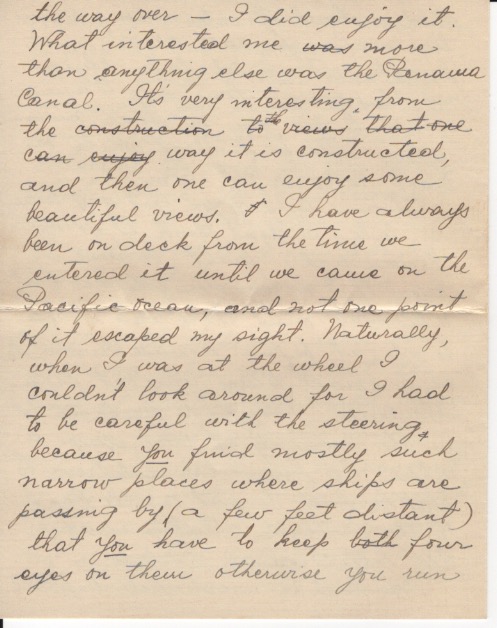 the way over — I did enjoy it.
What interested me was more
than anything else was the Panama
Canal. It's very interesting, from
the construction to the views that one
can enjoy way it is constructed,
and then one can enjoy some
beautiful views. I have always
been on deck from the time we
entered it until we came on the
Pacific ocean, and not one point
of it escaped my sight. Naturally,
when I was at the wheel I
couldn't look around for I had
to be careful with the steering,
because you find mostly such
narrow places where ships are
passing by (a few feet distant)
that you have to keep both four
eyes on them otherwise you run